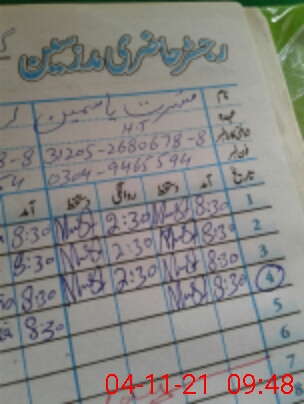 رجسٹر حاضری مدرسین
نام مسرت یاسمین
عہدہ H.T
31205-2680678-8
0304-9465594
تاریخ آمد دستخط روانگی دستخط آمد
1 8:30 Must 2:30 Must 8:30
2 8:30 Must 2:30 Must 8:30
3 8:30 Must 2:30 Must 8:30
4 8:30 Must 8:30
5
6
7
8
04-11-21 09:48